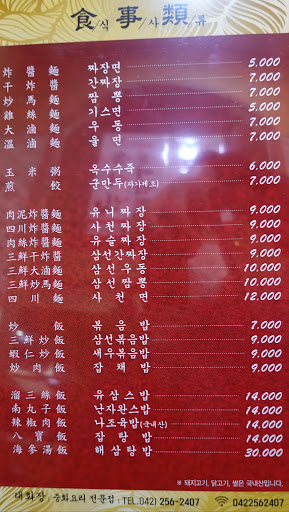 食식/事사/類류
炸醬麵 짜장면 5.000
干炸醬 간짜장 7.000
炒馬麵 짬뽕 7.000
雞絲麵 기스면 5.000
大滷麵 우동 7.000
溫滷麵 울면 7.000
玉米粥 옥수수죽 6.000
煎餃 군만두(자가제조) 7.000
肉泥炸醬麵 유니짜장 9.000
四川炸醬麵 사천짜장 9.000
肉絲炸醬麵 유슬짜장 9.000
三鮮干炸醬 삼선간짜장 9.000
三鮮大滷麵 삼선우동 10.000
三鮮炒馬麵 삼선짬뽕 10.000
四川麵 사천면 12.000
炒飯 볶음밥 7.000
三鮮炒飯 삼선볶음밥 9.000
蝦仁炒飯 새우볶음밥 9.000
炒肉飯 잡채밥 9.000
溜三絲飯 유삼스밥 14.000
南丸子飯 난자완스밥 14.000
辣椒肉飯 나조육밥(국내산) 14.000
八寶飯 잡탕밥 14.000
海參湯飯 해삼탕밥 30.000
※ 돼지고기, 닭고기, 쌀은 국내산입니다.
대화장 중화요리 전문점 : TEL.042) 256-2407 0422562407